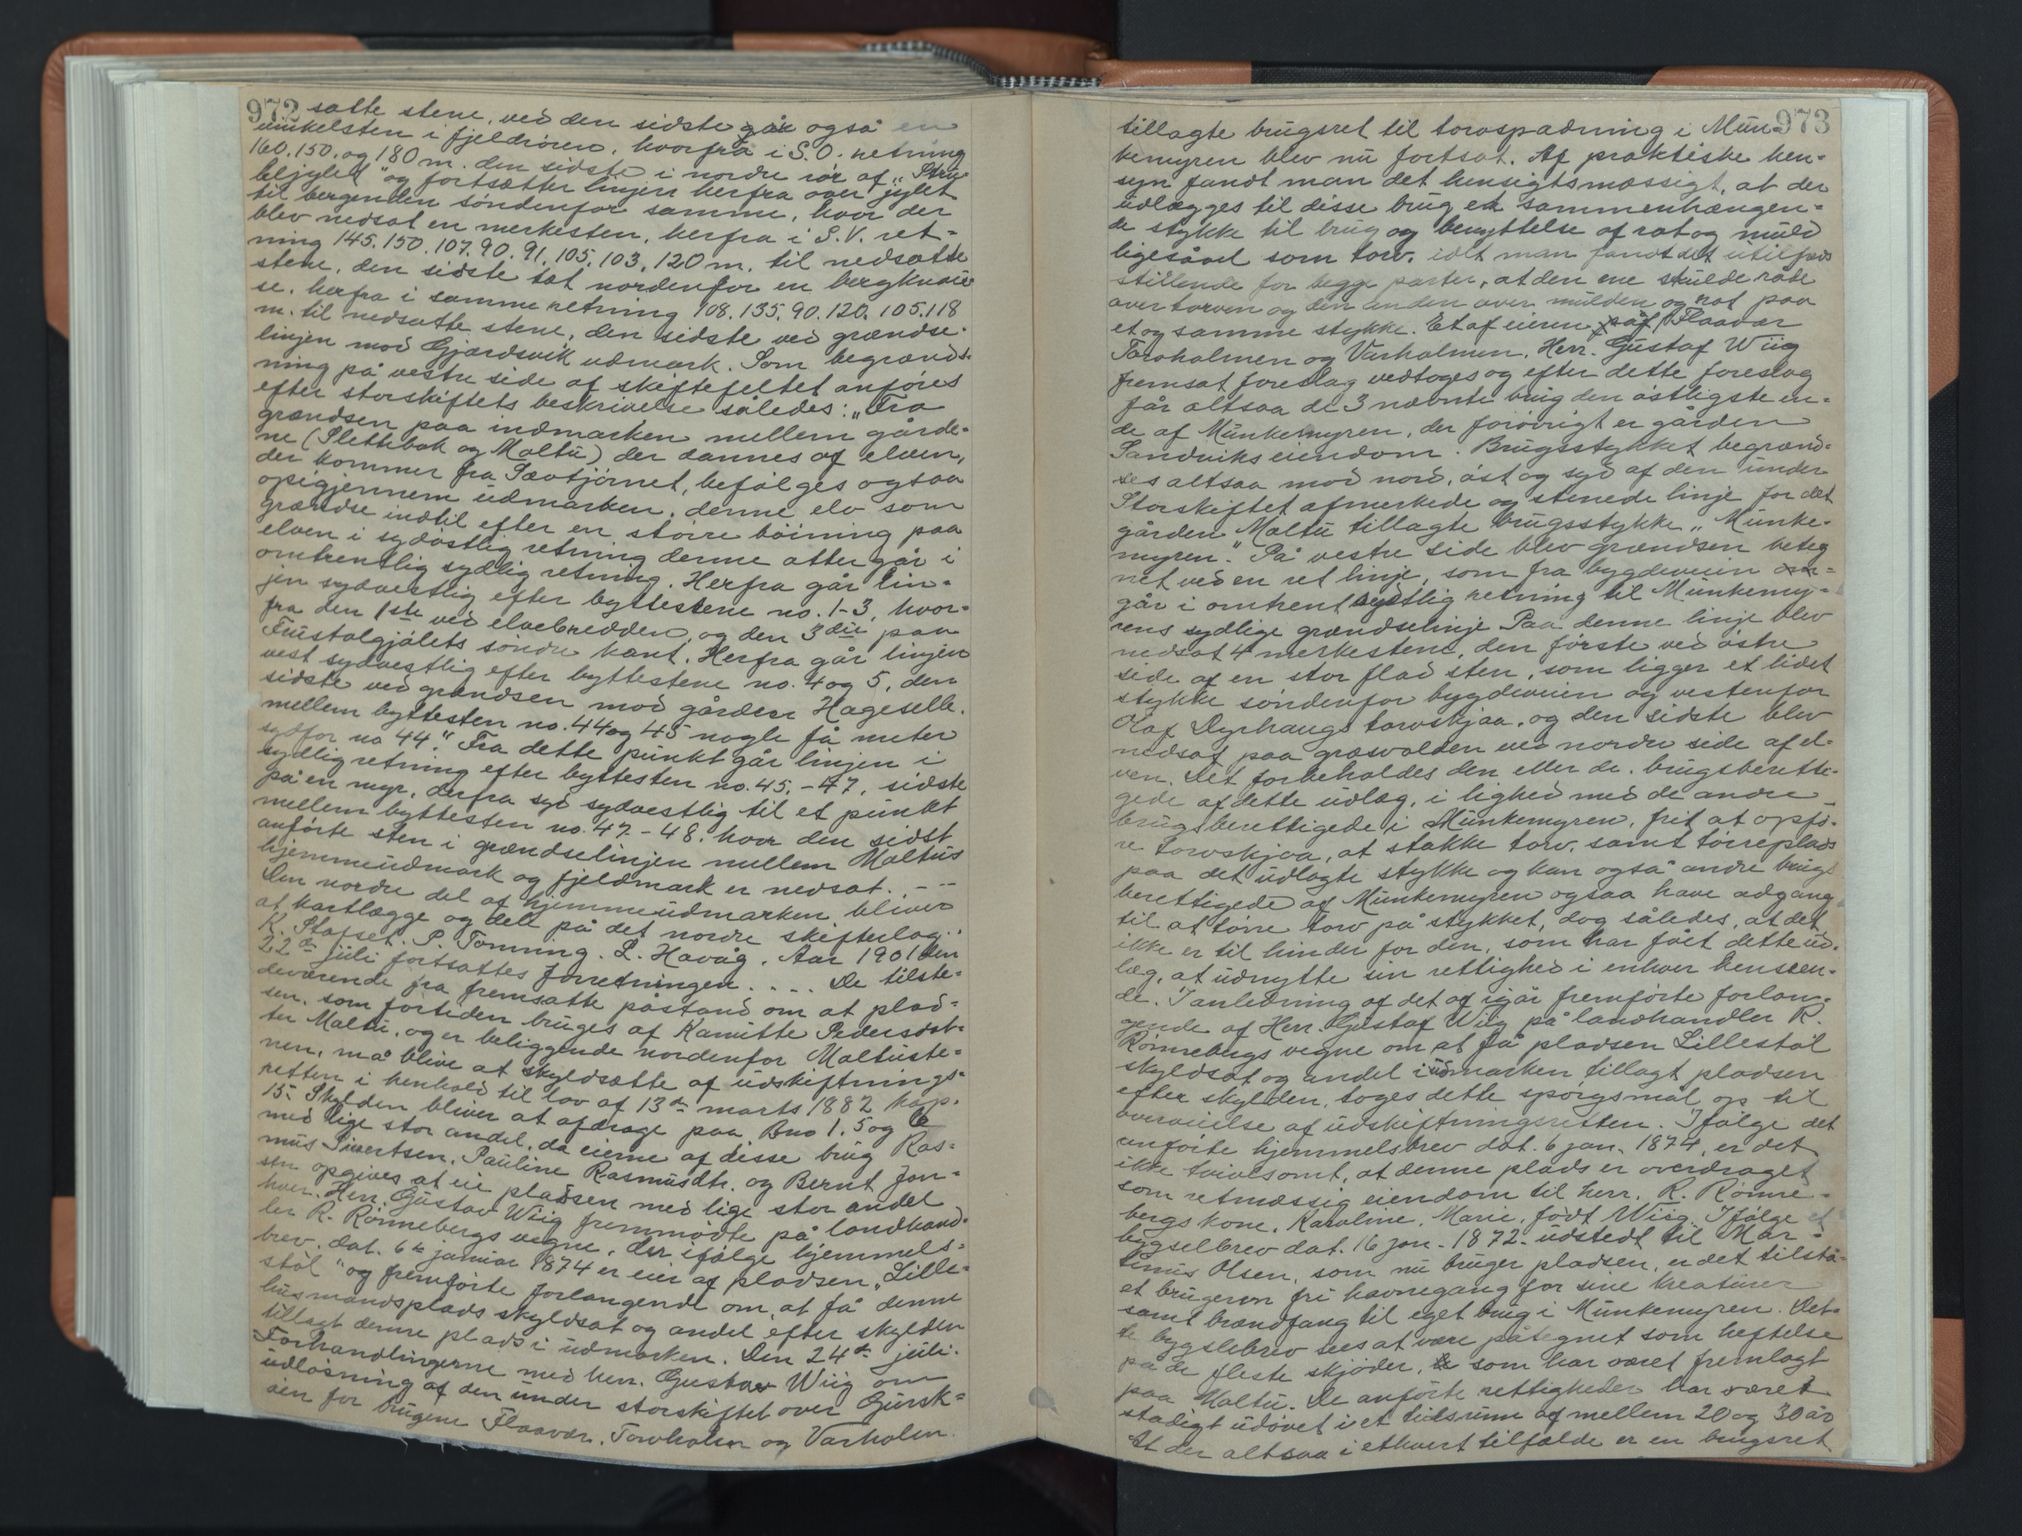 972
satte stene, ved den sidste går også en
vinkelsten i fjeldrören, hvorfra i S.O. retning
160. 150. og 180 m. den sidste i nordre rör af „Stru
beljylet" og fortsætter linjen herfra over jylet
til bergenden söndenfor samme, hvor der
blev nedsat en merkesten, herfra i S.V. ret-
ning 145. 150. 107. 90. 91. 105. 103. 120 m. til nedsatte
stene, den sidste tat nordenfor en bergknau
se. herfra i samme retning 108. 135. 90. 120. 105. 118
m. til nedsatte stene, den sidste ved grændse-
linjen mod Gjærdsvik udmark. Som begrænds-
ning på vestre side af skiftefeltet anföres
efter storskiftets beskrivelse således: „Fra
grændsen paa indmarken mellem gårde-
ne (Slettebak og Moltu) der dannes af elven,
der kommer fra Sætjörnet, befölges ogsaa
opigjennem udmarken, denne elv som
grændse indtil efter en större böining paa
elven i sydöstlig retning denne atter går i
omtrentlig sydlig retning. Herfra går lin-
jen sydvestlig efter byttestene no. 1-3, hvor-
fra den 1ste ved elvebredden, og den 3die paa
Fristolgjölets söndre kant. Herfra går linjen
vest sydvestlig efter byttestene no. 4 og 5, den
sidste ved grændsen mod gården Hageselle.
mellem byttesten no. 44 og 45 nogle få meter
sydfor no 44." Fra dette punkt går linjen i
sydlig retning efter byttesten no. 45.-47, sidste
på en myr, derfra syd sydvestlig til et punkt
mellem byttesten no. 47-48. hvor den sidst
anförte sten i grændselinjen mellem Moltus
hjemmeudmark og fjeldmark er nedsat. - -
Den nordre del af hjemmeudmarken bliver
at kartlægge og dele på det nordre skifterlag..
K. Stafset. P. Tomning. L. Havåg. Aar 1901 den
22de juli fortsattes forretningen .... De tilste-
deværende fra fremsatte påstand om at plad-
sen, som fortiden bruges af Kamitte Pedersdat-
ter Moltu, og er beliggende nordenfor Moltuste-
nen, må blive at skyldsætte af udskiftnings-
retten i henhold til lov af 13de marts 1882 kap.
15. Skylden bliver at afdrage paa Bno 1. 5 og 6
med lige stor andel, da eierne af disse brug Ras-
mus Sivertsen, Pauline Rasmusdtr. og Bernt Jon-
sen opgives at eie pladsen med lige stor andel
hver. Herr Gustav Wiig fremmödte på landhand-
ler R. Rönnebergs vegne, der ifölge hjemmels-
brev, dat. 6te januar 1874 er eier af pladsen „Lille-
stöl" og fremförte forlangende om at få denne
husmandsplads skyldsat og andel efter skylden
tillagt denne plads i udmarken. Den 24de juli.
Forhandlingerne med herr. Gustav Wiig om
udlösning af den under storskiftet over Gursk-
öen for brugene Flaavær, Torvholm og Varholm.
973
tillagte brugsret til torvspadning i Mun-
kemyren blev nu fortsat. Af praktiske hen-
syn fandt man det hensigtsmæssigt, at der
udlægges til disse brug en sammenhængen-
de stykke til brug og benyttelse af rot og muld
ligesåvel som torv, idet man fandt det utilfreds
stillende for begge parter, at den ene skulde råde
over torven og den anden over mulden og rot paa
et og samme stykke. Et af eieren på Flaavær
Torvholmen og Varholmen, Herr. Gustaf Wiig
fremsat foreslag vedtoges og efter dette foreslag
får altsaa de 3 nævnte brug den östligste en-
de af Munkemyren, der forövrigt er gården
Sandviks eiendom. Brugsstykket begrænd-
ses altsaa mod nord, öst og syd af den under
Storskiftet afmerkede og stenede linje for det
gården Moltu tillagte brugsstykke „Munke-
myren." På vestre side blev grændsen beteg
net ved en ret linje, som fra bygdeveien
går i omtrent sydlig retning til Munkemy-
rens sydlige grændselinje Paa denne linje blev
nedsat 4 merkestene, den förste ved östre
side af en stor flad sten, som ligger et lidet
stykke söndenfor bygdeveien og vestenfor
Olaf Dyrhaugs torvskjaa, og den sidste blev
nedsat paa græsvolden ved nordre side af el-
ven. Det forbeholdes den eller de. brugsberetti-
gede af dette udlæg, i lighed med de andre
brugsberettigede i Munkemyren, frit at opfö-
re torvskjaa, at stakke torv, samt törreplads
paa det udlagte stykke og kan også andre brugs
berettigede af Munkemyren ogsaa have adgang
til at törre torv på stykket, dog således, at det
ikke er til hinder for den, som har fåct dette ud-
læg, at udnytte sin rettighed i enhver henseen-
de. I anledning af det af igår fremförte forlan-
gende af Herr. Gustaf Wiig på landhandler R.
Rönnebergs vegne om at få pladsen Lillestöl
skyldsat og andel i udmarken tillagt pladsen
efter skylden, toges dette spörgsmål op til
overveielse af udskiftningsretten. Ifölge det
anförte hjemmelsbrev dat. 6 jan. 1874, er det
ikke tvivlsomt, at denne plads er overdraget
som retmæssig eiendom til herr. R. Rönne-
bergs kone, Karoline, Marie, född Wiig. Ifölge et
bygselbrev dat. 16 jan. 1872. udstedt til Mar-
tinus Olsen, som nu bruger pladsen, er det tilstå-
et brugeren fri havnegang for sine kreaturer
samt brændfang til eget brug i Munkemyren. Det-
te bygslebrev sees at være påtegnet som heftelse
på de fleste skjöder, som har været fremlagt
paa Moltu. De anförte rettigheder har været
stadigt udövet i et tidsrum af mellem 20 og 30 år
At der altsaa i ethvert tilfælde er en brugsret